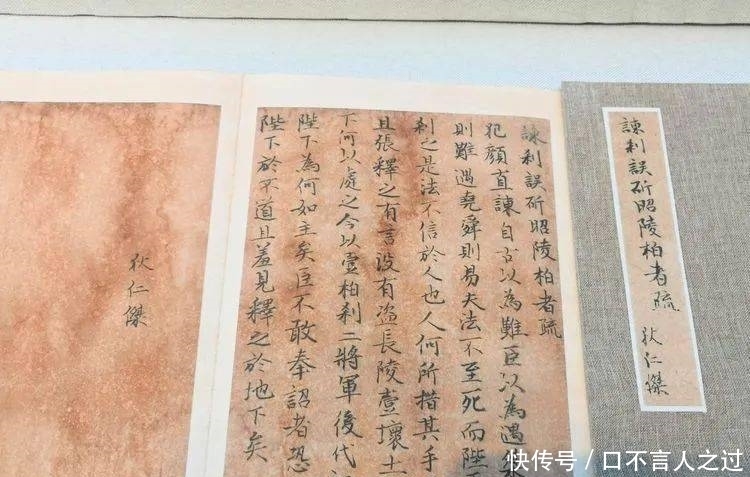 諫刹誤斫昭陵柏者疏
狄仁傑
諫刹誤斫昭陵柏者疏
犯顏直諫自古以為難臣以為遇
則難遇堯舜則易夫法不至死而陛
刹之是法不信於人也人何所措其手
且張釋之有言設有盗長陵壹壞土
下何以處之今以壹柏刹二將軍後代
陛下為何如主矣臣不敢奉詔者恐
陛下於不道且羞見釋之於地下矣
狄仁傑
快传号/口不言人之过